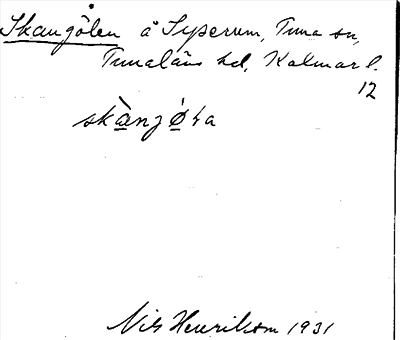 Skångölen å Syserum, Tuna sn,
Tunaläns hd, Kalmar l.
12
skànjø̀ɫa
Nils Henrikson 1931